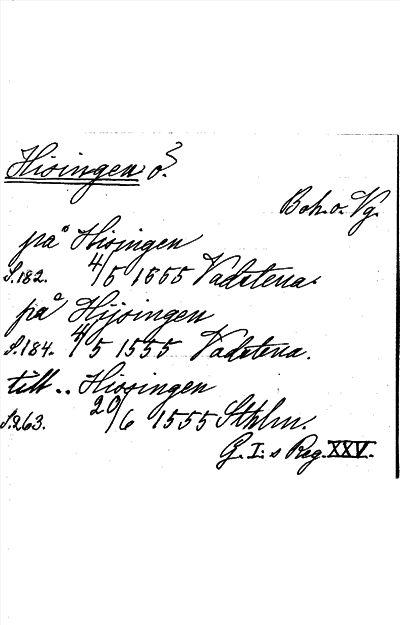 Hisingen ö.
Boh. o. Vg.
på Hisingen
S.182. 4/5 1555 Vadstena.
på Hijsingen
S.184. 4/5 1555 Vadstena.
till .. Hissingen
S.263. 20/6 1555 Sthlm.
G. I:s Reg. XXV.